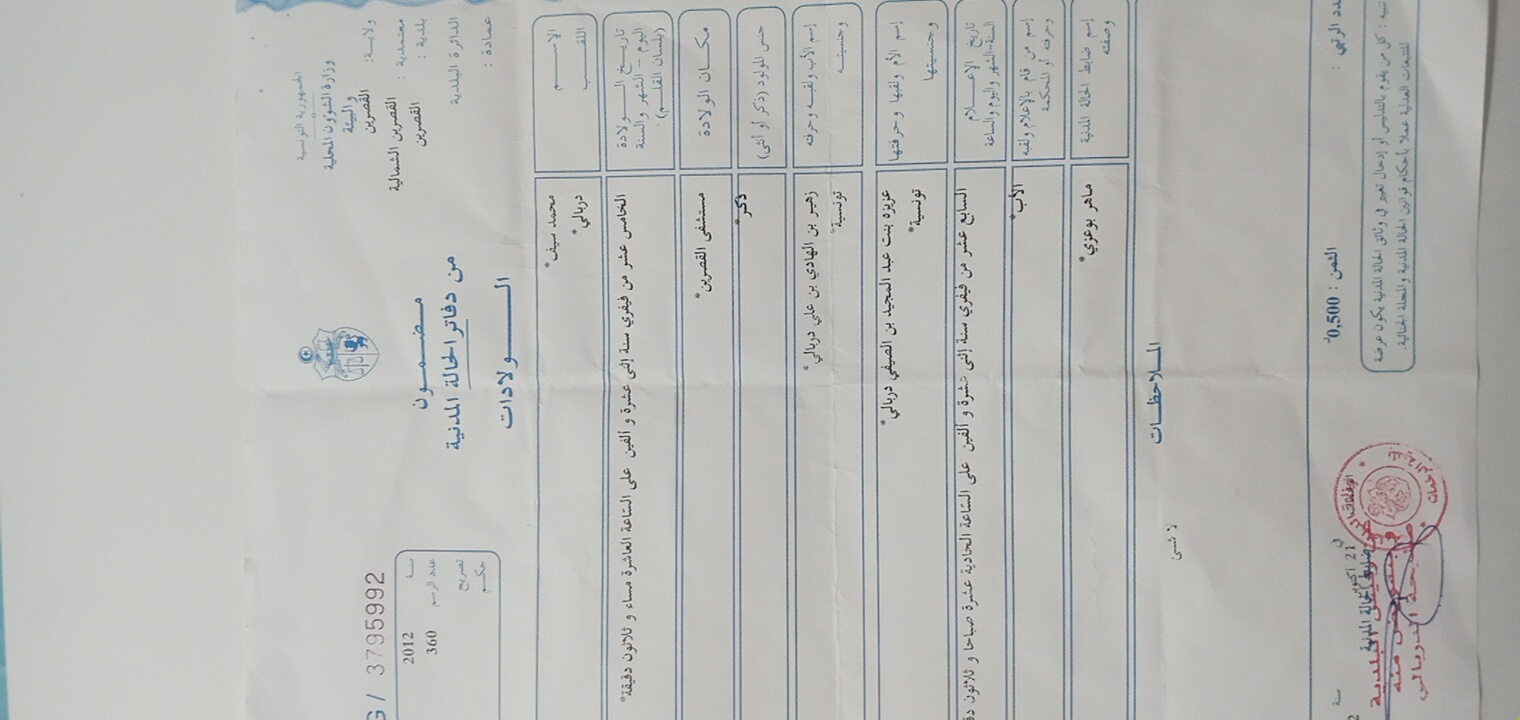 الجمهورية التونسية
وزارة الشؤون المحلية
والبيئة
ولاية: القصرين
معتمدية : القصرين الشمالية
بلدية : القصرين
الدائرة البلدية
عمادة :
مضمون
من دفاتر الحالة المدنية
الولادات
G / 3795992
سنة 2012
عدد الرسم 360
تصريح
حكم
الإسم
اللقب
محمد سيف*
دربالي*
تاريخ الولادة
اليوم - الشهر والسنة
(بلسان القلم)
الخامس عشر من فيفري سنة إثنى عشرة و ألفين على الساعة العاشرة مساء و ثلاثون دقيقة*
مكان الولادة
مستشفى القصرين*
جنس المولود (ذكر أو أنثى)
ذكر*
إسم الأب ولقبه وحرفته
وجنسيته
زهير بن الهادي بن علي دربالي*
تونسية*
إسم الأم ولقبها وحرفتها
وجنسيتها
عزيزه بنت عبد المجيد بن الصيفي دربالي*
تونسية*
تاريخ الإعلام
السنة-الشهر واليوم والساعة
السابع عشر من فيفري سنة إثنى عشرة و ألفين على الساعة الحادية عشرة صباحا و ثلاثون
إسم من قام بالإعلام ولقبه
وحرفته أو المحكمة
الأب*
إسم ضابط الحالة المدنية
وصفته
ماهر بوعزي*
الملاحظات
لا شئ
الرتبي :
الثمن : 0,500
في 21 أكتوبر
سنة
ضابط الحالة المدنية
تنبيه : كل من يقوم بالتدليس أو إدخال تغيير في وثائق الحالة المدنية يكون عرضة
للتتبعات العدلية عملا بأحكام قوانين الحالة المدنية والمجلة الجنائية.